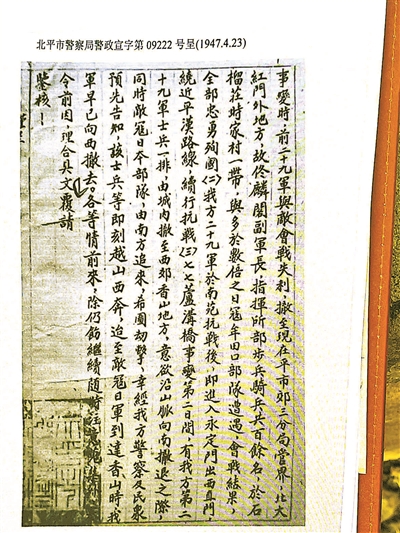 北平市警察局警政宣字第 09222 号呈(1947.4.23)
事变时,前二十九軍與敵會戰失利,撤至現在平市郊三分局管界,北大
紅門外地方,故佟麟閣副軍長指揮所部步兵騎兵共百餘名,於石
榴莊時家村一帶,與多於數倍之日寇牟田口部隊遭遇,會戰結果,
全部忠勇殉國〈二〉我方二十九軍於南苑抗戰後,即進入永定門出西直門,
繞近平漢路線,續行抗戰〈三〉七七蘆溝橋事變第二日間,有我方第二
十九軍士兵一排,由城內撤至西郊香山地方,意欲沿山脈向南撤退之際,
同時敵寇日本部隊,由南方追來,希圖刧擊,幸經我方警察及民衆
預先告知,該士兵等即刻越山西奔,迨至敵寇日軍到達香山時我
軍早已向西撤去。各等情前來,除仍飭繼續隨時
令前因,理合具文覆請
鑒核!